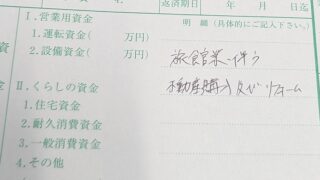 返済期日 年 月 日迄
Ⅰ.営業用資金 明細(具体的にご記入下さい。)
1.運転資金( 万円)
2.設備資金( 万円) 旅館業に伴う
Ⅱ.くらしの資金 不動産購入及びリフォーム
1.住宅資金
2.耐久消費資金
3.一般消費資金
4.その他